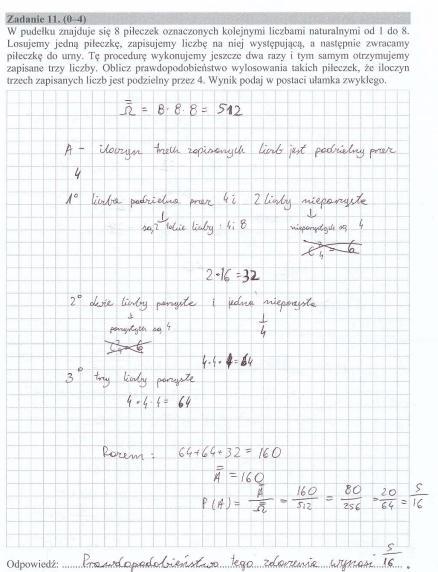 Zadanie 11. (0–4)
W pudełku znajduje się 8 piłeczek oznaczonych kolejnymi liczbami naturalnymi od 1 do 8.
Losujemy jedną piłeczkę, zapisujemy liczbę na niej występującą, a następnie zwracamy
piłeczkę do urny. Tę procedurę wykonujemy jeszcze dwa razy i tym samym otrzymujemy
zapisane trzy liczby. Oblicz prawdopodobieństwo wylosowania takich piłeczek, że iloczyn
trzech zapisanych liczb jest podzielny przez 4. Wynik podaj w postaci ułamka zwykłego.
Ω = 8·8·8 = 512
A – iloczyn trzech zapisanych liczb jest podzielny przez
4
1° liczba podzielna przez 4 i 2 liczby nieparzyste
↓ ↓
są 2 takie liczby: 4 i 8 nieparzystych są 4
2·16 = 32
2° dwie liczby parzyste i jedna nieparzysta
↓ ↓
parzystych są 4 4
4·4·4 = 64
3° trzy liczby parzyste
4·4·4 = 64
Razem: 64+64+32 = 160
A = 160
P(A) = A/Ω = 160/512 = 80/256 = 20/64 = 5/16
Odpowiedź: Prawdopodobieństwo tego zdarzenia wynosi 5/16.